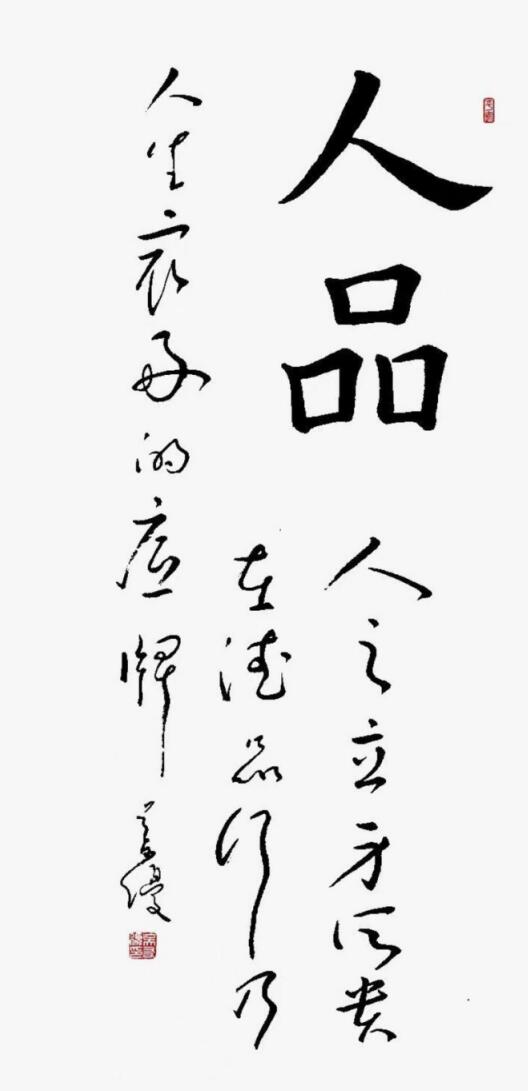 人品
人之立身所贵
在德品行乃
人生最好的底牌